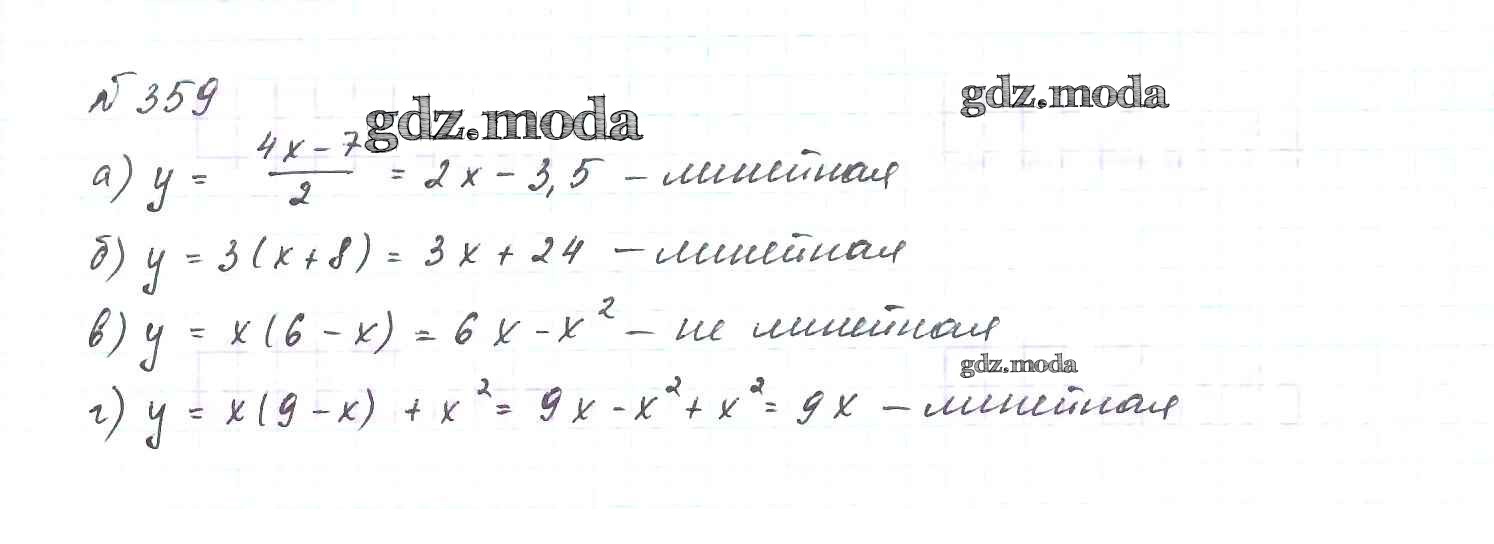 № 359
gdz.moda
gdz.moda
а) y = \frac{4x - 7}{2} = 2x - 3,5 – линейная
б) y = 3(x + 8) = 3x + 24 – линейная
в) y = x(6 - x) = 6x - x² – не линейная
gdz.moda
г) y = x(9 - x) + x² = 9x - x² + x² = 9x – линейная